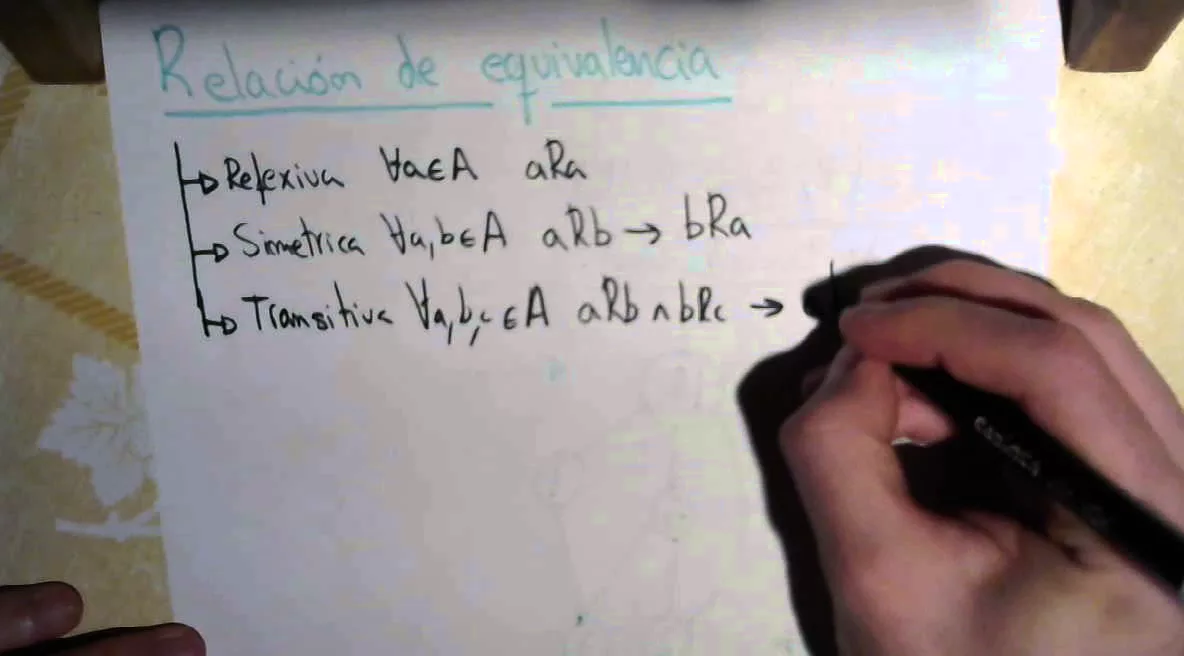 Relación de equivalencia
Reflexiva ∀a∈A aRa
Simetrica ∀a,b∈A aRb → bRa
Transitiva ∀a,b,c∈A aRb ∧ bRc →